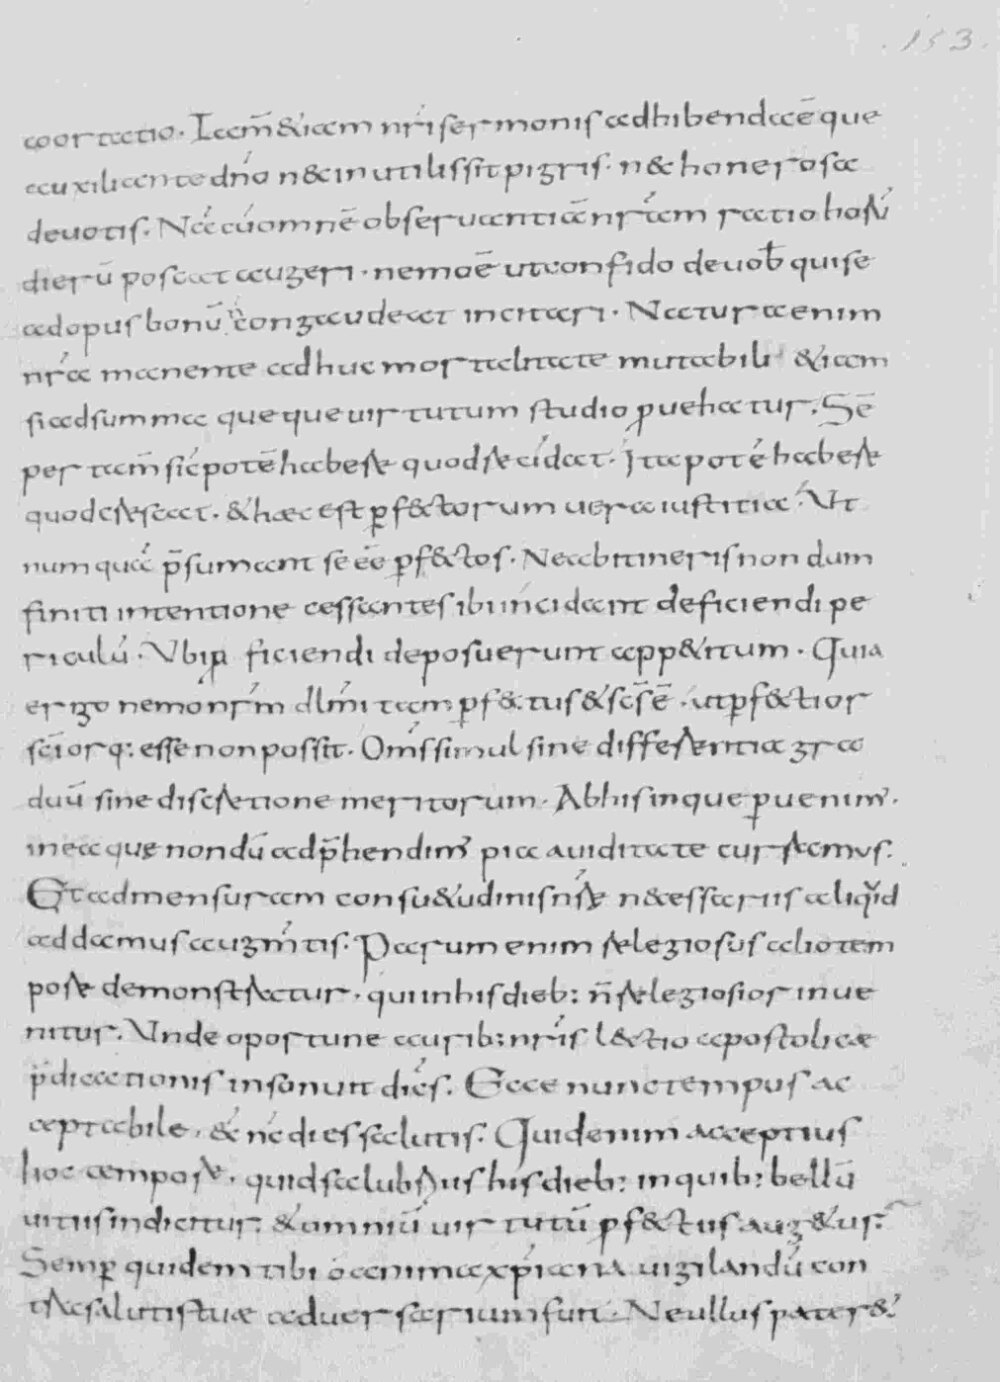 .153.
aortatio. Iam̄ & iam nr̄i sermonis adhibenda ē que
auxiliante dn̄o n& inutilis sit pigris. n& honerosa
deuotis. Nā cū omnē obseruantiā nr̄am ratio hor̄
dierū poscat augeri. nemo ē ut confido de uob̄ qui se
ad opus bonū congaudeat incitari. Natura enim
nr̄a manente adhuc mortalitate mutabili &iam
si ad summa queque uirtutum studio prouehatur. Sē
per tam̄ sic potē habere quod recidat. Ita potē habere
quo crescat. & hæc est ꝑf&torum uera iustitia. Ut
numquā p̄sumant se eē ꝑf&tos. Ne ab itineris nondum
finiti intentione cessantes ibi incidant deficiendi pe
riculū. Ubi ꝓficiendi deposuerunt app&itum. Quia
ergo nemo nr̄m dl̄mi tam ꝑf&tus & sc̄s ē. ut ꝑf&tior
sc̄iorq; esse non possit. Om̄s simul sine differentia gra
duū sine discretione meritorum. Ab his in que puenim᾽.
in ea que nondū adp̄hendim᾽ pia auiditate curramus.
Et ad mensuram consu&udinis nr̄e n&essariis aliquid
addamus augm̄tis. Parum enim religiosus alio tem
pore demonstratur. qui in his dieb; n̄ religiosior inue
nitur. Unde oportune aurib; nr̄is l&tio apostolicæ
p̄dicationis insonuit dic̄s. Ecce nunc tempus ac
ceptabile. & nc̄ dies salutis. Quid enim acceptius
hoc tempore. quid salubrius his dieb; in quib; bellū
uitiis indicitur. & omniū uirtutū ꝓf&tus aug&ur.
Semꝑ quidem tibi o anima xp̄iana uigilandū con
tra salutis tuæ aduersarium fuit. Ne ullus pater&